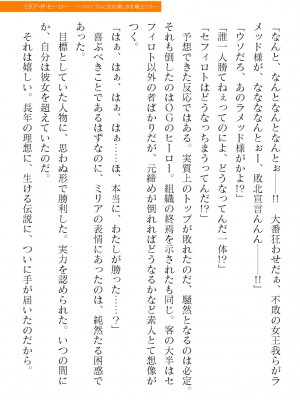 ミリア・ザ・ヒーロー
『なんと、なんとなんとなんとぉ　!!　大番狂わせだぁ、不敗の女王我らがラ
メッド様が、なななななんとぉー、敗北宣言んんん　　　　!!』
「ウソだろ、あのラメッド様がかよ!?」
「誰一人勝てねぇってのによ、どうなってんだ一体!?」
「セフィロトはどうなっちまうってんだ!?」
予想できた反応ではある。実質上のトップが敗れたのだ、騒然となるのは必定。
それも倒したのはOGのヒーロー。組織の終焉を示されたも同じ。客の大半はセ
フィロト以外の者ばかりだが、元締めが倒れればどうなるかなど素人とて想像が
つく。
「はぁ、はぁ、はぁ、はぁ……ほ、本当に、わたしが勝った……？」
喜ぶべきことであるはずなのに、ミリアの表情にあったのは、純然たる困惑で
目標としていた人物に、思わぬ形で勝利した。実力を認められた。いつの間に
か、自分は彼女を超えていたのだ。
しかも、勝てた。長年の理想に、生ける伝説に、ついに手が届いたのだから。